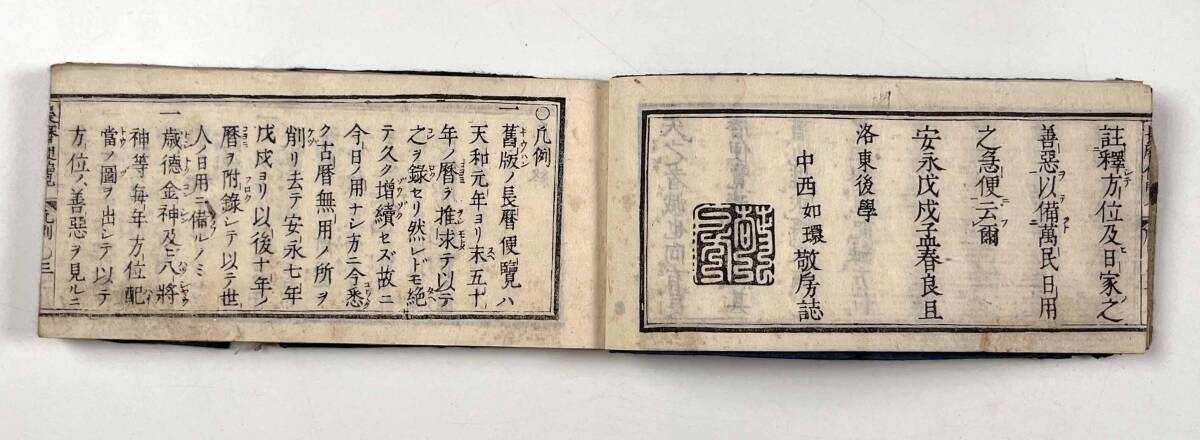 註釋方位及日家之
善惡以備萬民日用
之急便云爾
安永戊戌孟春良且
洛東後學
中西如環敬房誌
○凡例
一舊版ノ長暦便覽ハ
天和元年ヨリ末五十
年ノ暦ヲ推求テ以テ
之ヲ録セリ然レドモ絶
テ久ク増續セズ故ニ
今日ノ用ナシ方ニ今悉
ク古暦無用ノ所ヲ
削リ去テ安永七年
戊戌ヨリ以後十年ノ
暦ヲ附録シテ以テ世
人日用ニ備ルノミ
一歳德金神及ヒ八將
神等毎年方位配
當ノ圖ヲ出シテ以テ
方位ノ善惡ヲ見ルニ